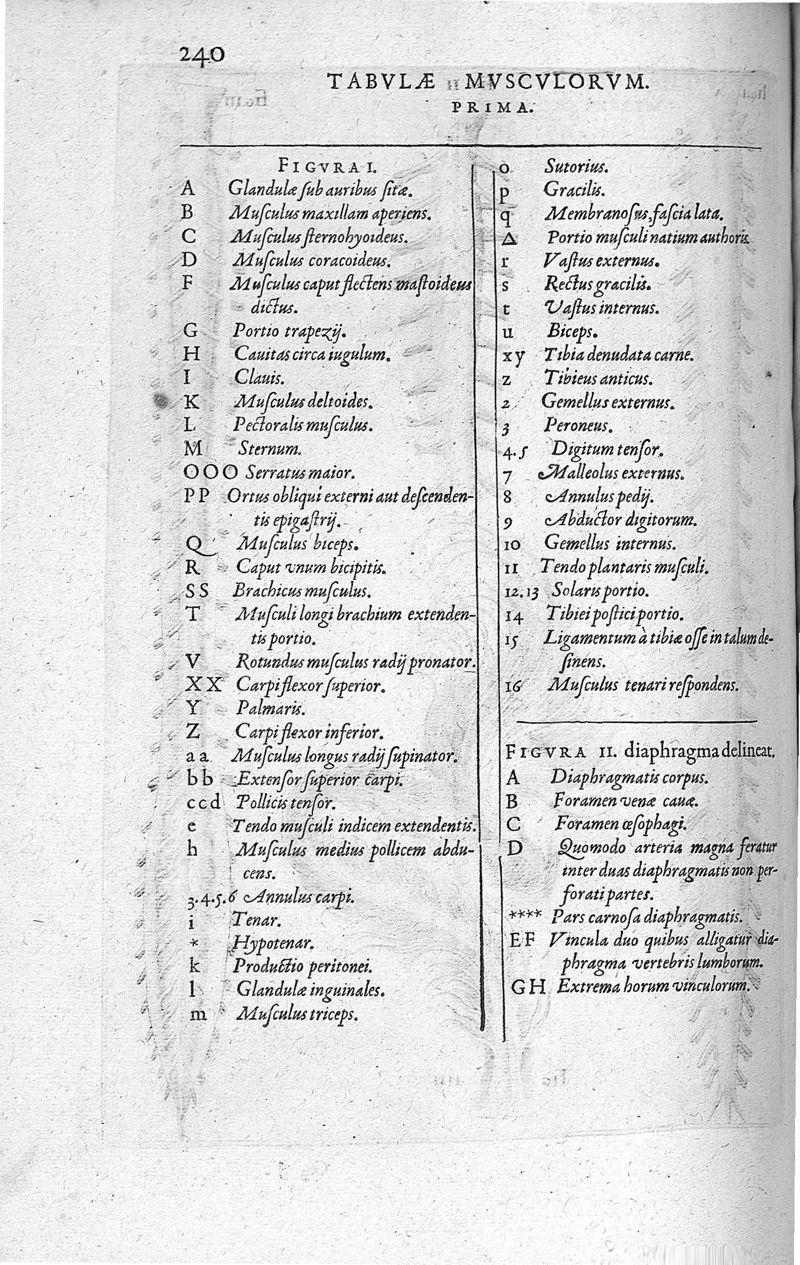 240
TABVLÆ MVSCVLORVM.
PRIMA.
FIGVRA I.
A Glandulæ ſub auribus ſitæ.
B Muſculus maxillam aperiens.
C Muſculus ſternohyoideus.
D Muſculus coracoideus.
F Muſculus caput flectens maſtoideus
dictus.
G Portio trapezij.
H Cauitas circa iugulum.
I Clauis.
K Muſculus deltoides.
L Pectoralis muſculus.
M Sternum.
OOO Serratus maior.
PP Ortus obliqui externi aut deſcenden-
tis epigaſtrij.
Q Muſculus biceps.
R Caput vnum bicipitis.
SS Brachicus muſculus.
T Muſculi longi brachium extenden-
tis portio.
V Rotundus muſculus radij pronator.
XX Carpi flexor ſuperior.
Y Palmaris.
Z Carpi flexor inferior.
aa Muſculus longus radij ſupinator.
bb Extenſor ſuperior carpi.
ccd Pollicis tenſor.
e Tendo muſculi indicem extendentis.
h Muſculus medius pollicem abdu-
cens.
3.4.5.6 Annulus carpi.
i Tenar.
* Hypotenar.
k Productio peritonei.
l Glandulæ inguinales.
m Muſculus triceps.
o Sutorius.
p Gracilis.
q Membranoſus, faſcia lata.
Δ Portio muſculi natium authoris.
r Vaſtus externus.
s Rectus gracilis.
t Vaſtus internus.
u Biceps.
xy Tibia denudata carne.
z Tibieus anticus.
2 Gemellus externus.
3 Peroneus.
4.5 Digitum tenſor.
7 Malleolus externus.
8 Annulus pedij.
9 Abductor digitorum.
10 Gemellus internus.
11 Tendo plantaris muſculi.
12.13 Solaris portio.
14 Tibiei poſtici portio.
15 Ligamentum à tibiæ oſſe in talum de-
ſinens.
16 Muſculus tenari reſpondens.
FIGVRA II. diaphragma delineat.
A Diaphragmatis corpus.
B Foramen venæ cauæ.
C Foramen œſophagi.
D Quomodo arteria magna feratur
inter duas diaphragmatis non per-
forati partes.
**** Pars carnoſa diaphragmatis.
EF Vincula duo quibus alligatur dia-
phragma vertebris lumborum.
GH Extrema horum vinculorum.